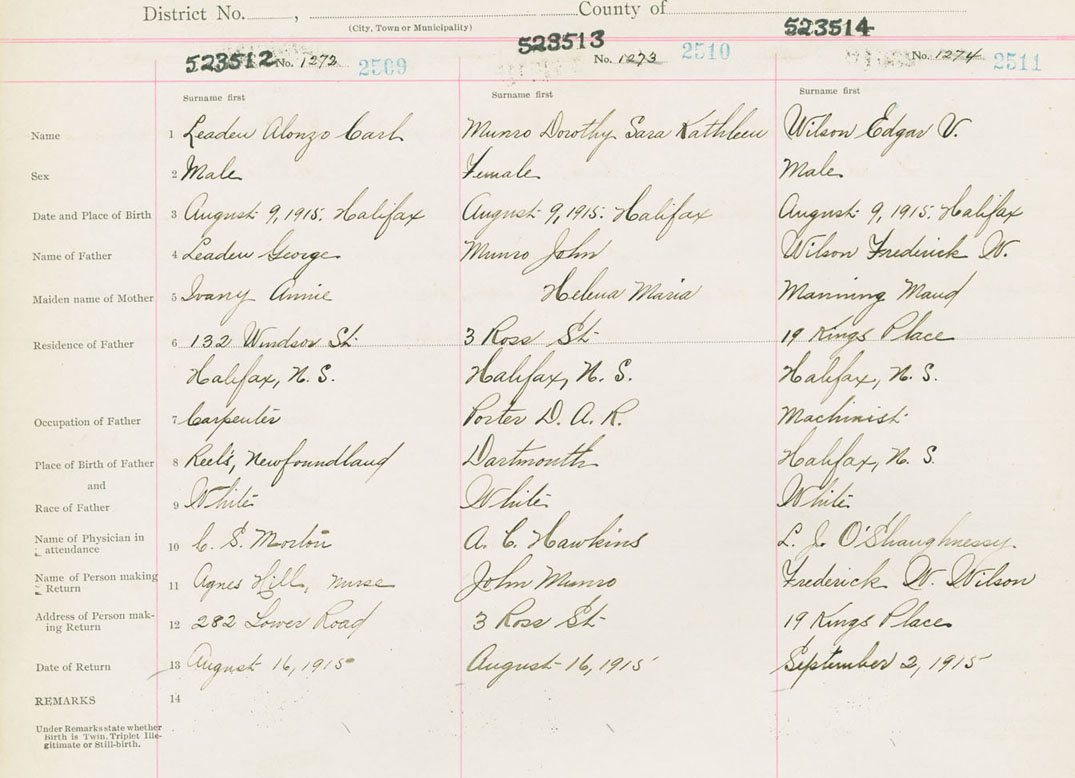 District No. , County of
(City, Town or Municipality)
523512 No. 1272 2509
523513 No. 1273 2510
523514 No. 1274 2511
Surname first Surname first Surname first
Name 1 Leaden Alonzo Carl Munro Dorothy Sara Kathleen Wilson Edgar V.
Sex 2 Male Female Male
Date and Place of Birth 3 August 9, 1915. Halifax August 9, 1915. Halifax August 9, 1915. Halifax
Name of Father 4 Leaden George Munro John Wilson Frederick W.
Maiden name of Mother 5 Ivany Annie Helena Maria Manning Maud
Residence of Father 6 132 Windsor St. 3 Ross St. 19 Kings Place
Halifax, N. S. Halifax, N. S. Halifax, N. S.
Occupation of Father 7 Carpenter Porter D. A. R. Machinist
Place of Birth of Father 8 Reel's, Newfoundland Dartmouth Halifax, N. S.
and
Race of Father 9 White White White
Name of Physician in
attendance 10 C. S. Morton A. C. Hawkins L. J. O'Shaughnessy
Name of Person making
Return 11 Agnes Hill, nurse John Munro Frederick W. Wilson
Address of Person mak-
ing Return 12 282 Lower Road 3 Ross St. 19 Kings Place
Date of Return 13 August 16, 1915 August 16, 1915 September 2, 1915
REMARKS 14
Under Remarks state whether
Birth is Twin, Triplet Ille-
gitimate or Still-birth.